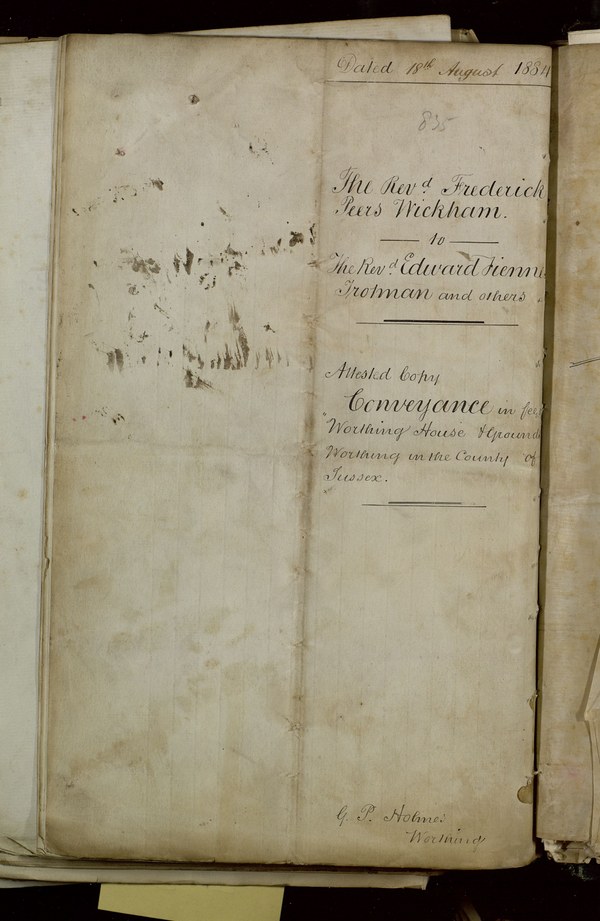 Dated 18th August 1884
835
The Revd Frederick
Peers Wickham.
to
The Revd Edward Fienne
Trotman and others
Attested Copy
Conveyance in fee of
Worthing House & Ground
Worthing in the County of
Sussex.
G. P. Holmes
Worthing